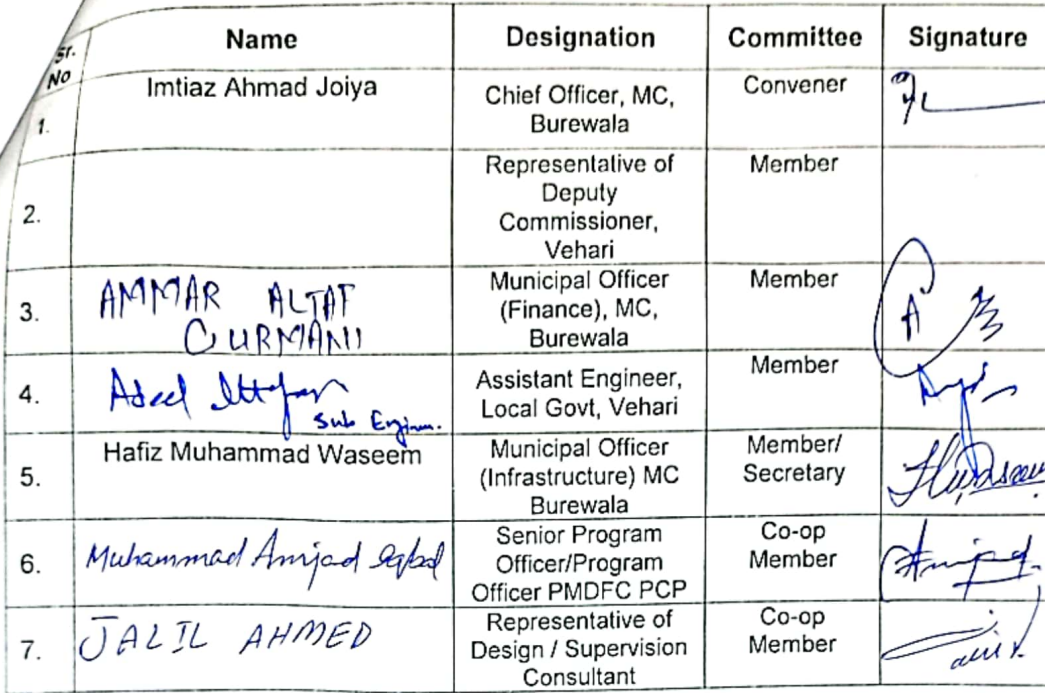 Sr. No
Name
Designation
Committee
Signature
1.
Imtiaz Ahmad Joiya
Chief Officer, MC,
Burewala
Convener
2.
Representative of
Deputy
Commissioner,
Vehari
Member
3.
AMMAR ALTAF
GURMANI
Municipal Officer
(Finance), MC,
Burewala
Member
4.
Adeel
Sub Engineer.
Assistant Engineer,
Local Govt, Vehari
Member
5.
Hafiz Muhammad Waseem
Municipal Officer
(Infrastructure) MC
Burewala
Member/
Secretary
6.
Muhammad Amjad Iqbal
Senior Program
Officer/Program
Officer PMDFC PCP
Co-op
Member
Amjad
7.
JALIL AHMED
Representative of
Design / Supervision
Consultant
Co-op
Member